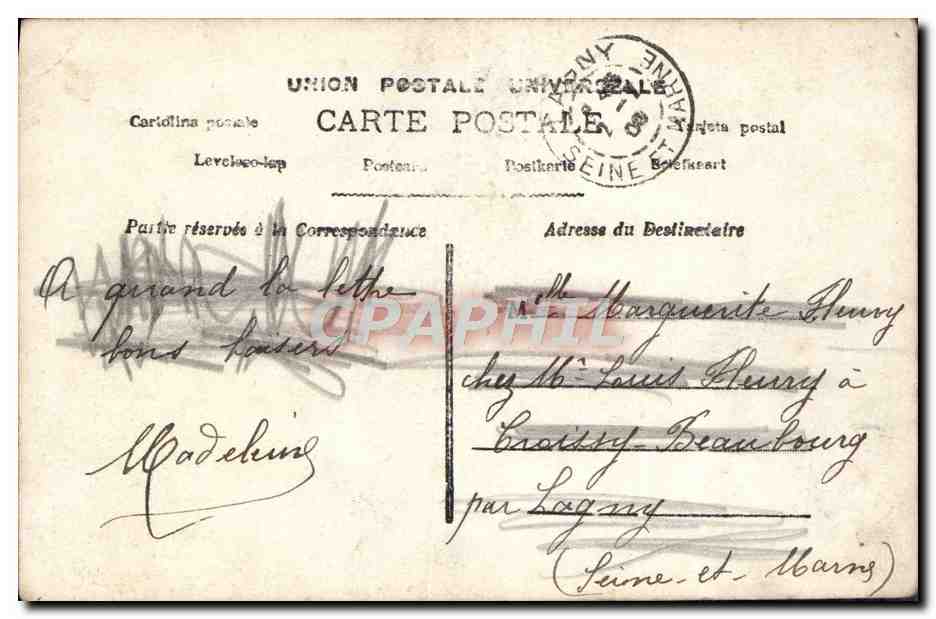 UNION POSTALE UNIVERSELLE
CARTE POSTALE
Cartolina postale
Tarjeta postal
Levelezo-lap
Postcard
Postkarte
Briefkaart
LAGNY
SEINE ET MARNE
Partie réservée à la Correspondance
Adresse du Destinataire
A quand la lettre
bons baisers
Madeleine
Melle Marguerite Fleury
chez Mr Louis Fleury à
Croissy-Beaubourg
par Lagny
(Seine-et-Marne)
CPAPHIL